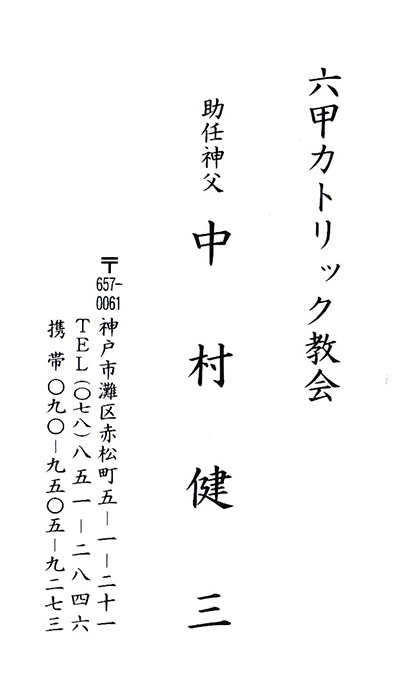 六甲カトリック教会
助任神父 中村健三
〒657-0061 神戸市灘区赤松町五-一-二十一
TEL(〇七八)八五一-二八四六
携帯〇九〇-九五〇五-九二七三